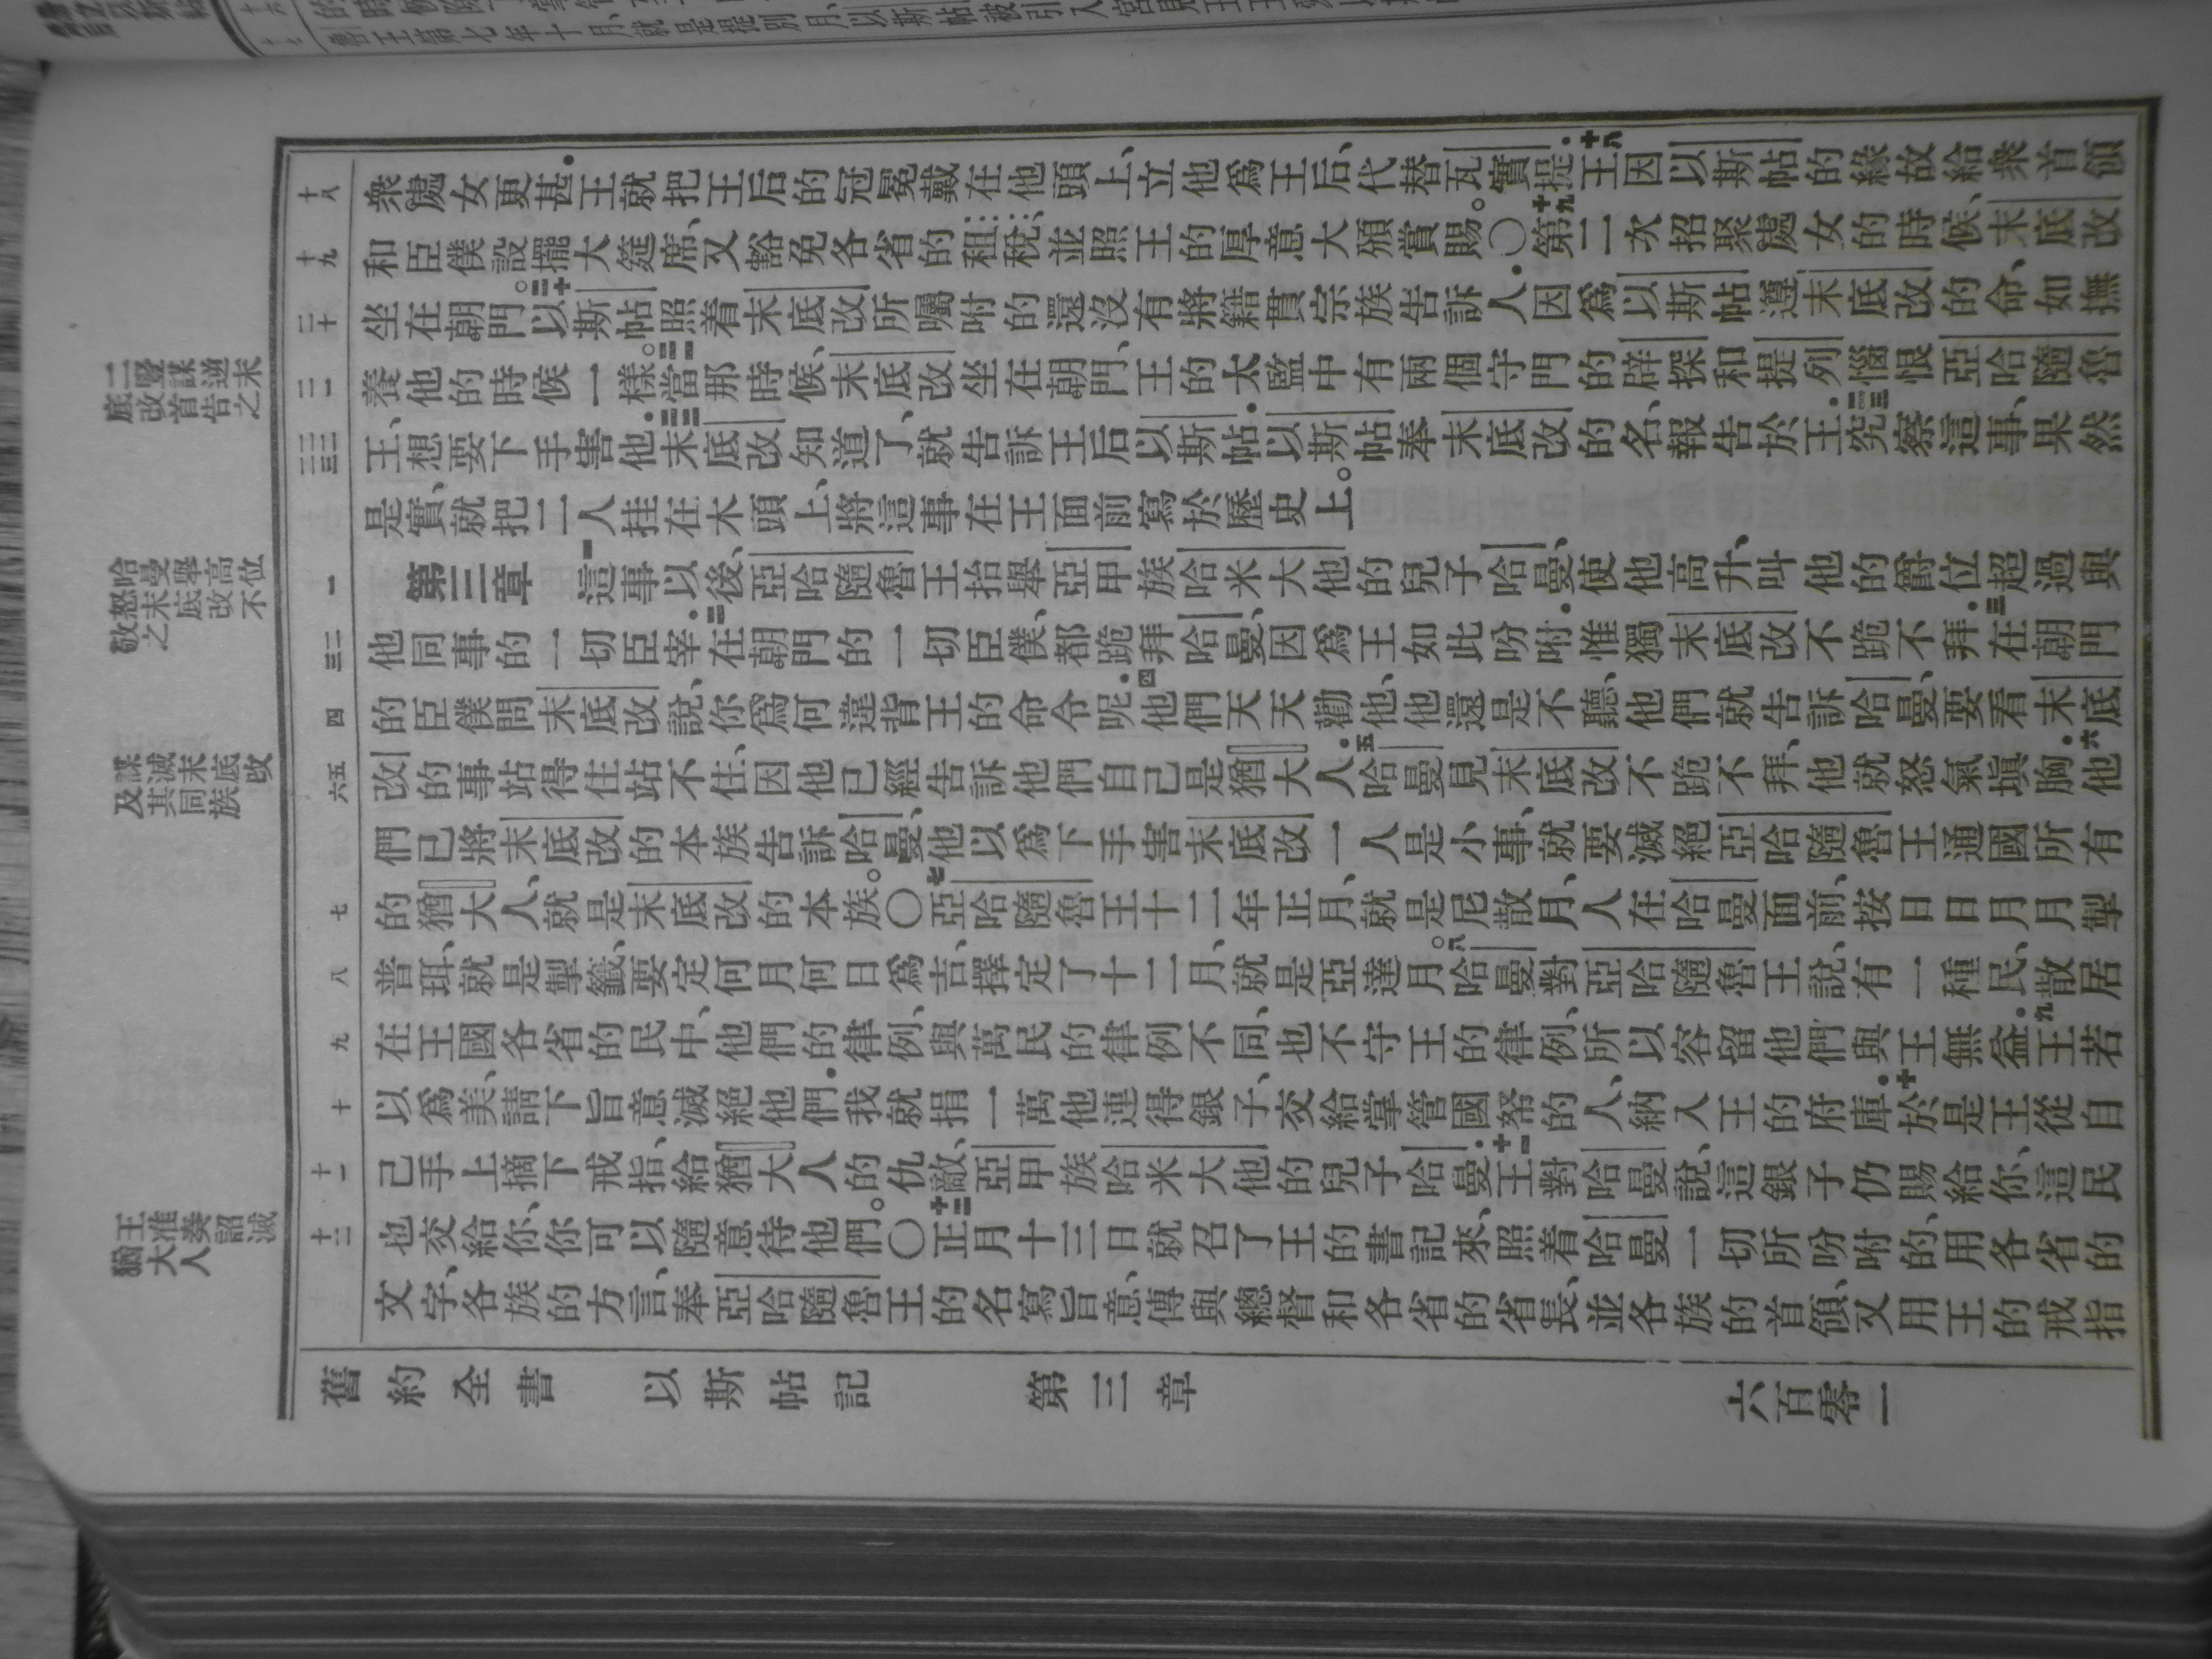 十八
眾處女更甚．王就把王后的冠冕戴在他頭上、立他爲王后、代替瓦實提．十八王因以斯帖的緣故給眾首領
十九
和臣僕設擺大筵席、又豁免各省的租稅、並照王的厚意大頒賞賜。〇十九第二次招聚處女的時候、末底改
二十
坐在朝門。二十以斯帖照着末底改所囑咐的還沒有將籍貫宗族告訴人．因爲以斯帖遵末底改的命、如撫
二一
養他的時候一樣。二一當那時候、末底改坐在朝門、王的太監中有兩個守門的辟探和提列、惱恨亞哈隨魯
二二 二三
王、想要下手害他．二二末底改知道了、就告訴王后以斯帖．以斯帖奉末底改的名、報告於王．二三究察這事、果然
是實、就把二人挂在木頭上、將這事在王面前寫於歷史上。
一
第三章 一這事以後、亞哈隨魯王抬舉亞甲族哈米大他的兒子哈曼、使他高升、叫他的爵位超過與
二 三
他同事的一切臣宰．二在朝門的一切臣僕、都跪拜哈曼、因爲王如此吩咐．惟獨末底改不跪不拜．三在朝門
四
的臣僕問末底改說、你爲何違背王的命令呢．四他們天天勸他、他還是不聽、他們就告訴哈曼、要看末底
五 六
改的事站得住站不住、因他已經告訴他們自己是猶大人．五哈曼見末底改不跪不拜、他就怒氣塡胸．六他
們已將末底改的本族告訴哈曼、他以爲下手害末底改一人是小事、就要滅絕亞哈隨魯王通國所有
七
的猶大人、就是末底改的本族。〇七亞哈隨魯王十二年正月、就是尼散月、人在哈曼面前、按日日月月掣
八
普珥、就是掣籤、要定何月何日爲吉、擇定了十二月、就是亞達月。八哈曼對亞哈隨魯王說、有一種民、散居
九
在王國各省的民中、他們的律例、與萬民的律例不同、也不守王的律例、所以容留他們與王無益．九王若
十
以爲美、請下旨意滅絕他們．我就捐一萬他連得銀子、交給掌管國帑的人、納入王的府庫．十於是王從自
十一
己手上摘下戒指、給猶大人的仇敵、亞甲族哈米大他的兒子哈曼．十一王對哈曼說、這銀子仍賜給你、這民
十二
也交給你、你可以隨意待他們。〇十二正月十三日、就召了王的書記來、照着哈曼一切所吩咐的、用各省的
文字、各族的方言、奉亞哈隨魯王的名寫旨意、傳與總督和各省的省長、並各族的首領、又用王的戒指
二豎謀逆末
底改首告之
哈曼舉高位
怒末底改不
敬之
謀滅末底改
及其同族
王准奏詔滅
猶大人
舊約全書 以斯帖記 第三章 六百零一